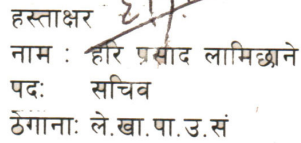 हस्ताक्षर
नाम : हरि प्रसाद लामिछाने
पदः सचिव
ठेगानाः ले.खा.पा.उ.सं